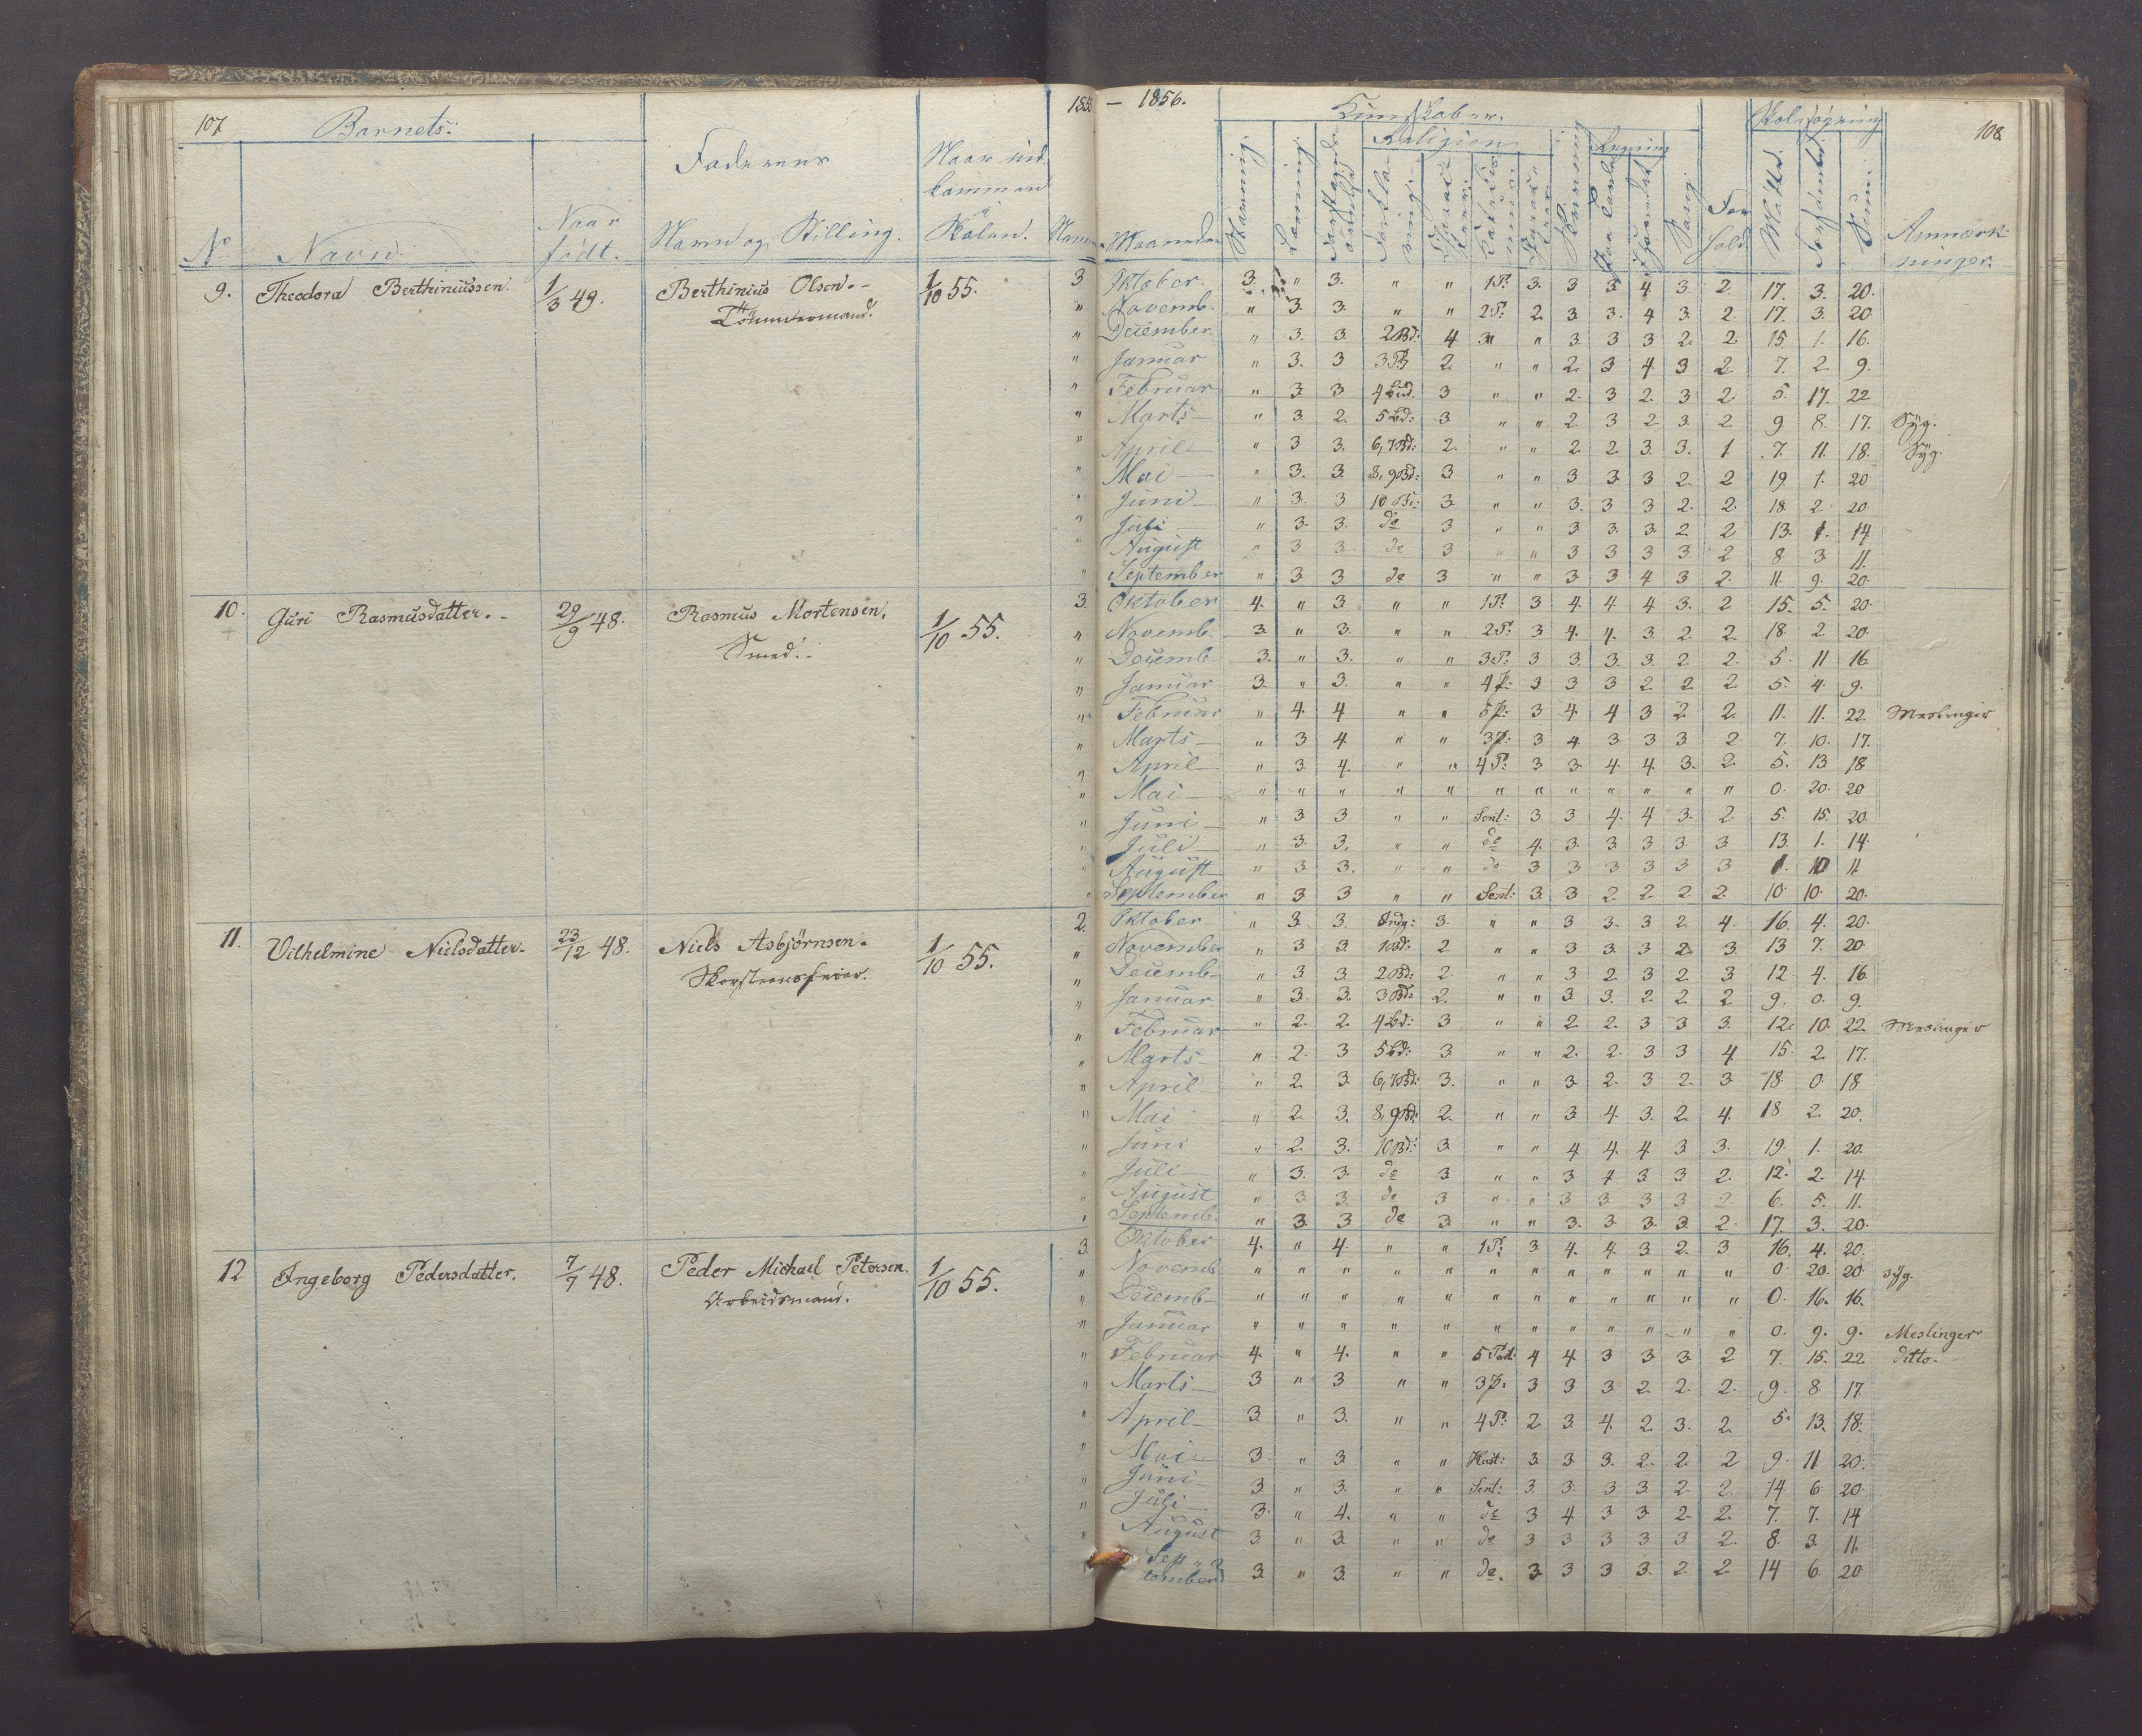 107
Barnets:
Faderens
Naar ind.
kommen
i
Skolen.
Nº
Navn
Naar
født.
Navn og Stilling.
9. Theodora Berthiniussen. 1/3 49. Berthinius Olsen.- 1/10 55. 3
Tømmermand.
10. Guri Rasmusdatter.- 29/9 48. Rasmus Mortensen. 1/10 55. 3.
Smed.-
11. Vilhelmine Nielsdatter. 23/12 48. Niels Asbjørnsen. 1/10 55. 2.
Skorsteensfeier.
12 Ingeborg Pedersdatter. 7/7 48. Peder Michael Petersen. 1/10 55. 3.
Arbeidsmand.
1855 – 1856.
108
Kundskaber.
Skolesøgning
Religion
Regning
Maaneder
Skrivning
Sang
For
hold
Sum.
Anmærk
ninger.
Oktober 3. " 3. " " 1P. 3. 3 3 4 3. 2. 17. 3. 20.
Novemb. " 3. 3. " " 2P. 2. 3 3. 4 3. 2. 17. 3. 20
December " 3. 3. 2Bd: 4 " " 3. 3 3 2. 2. 15 1. 16.
Januar " 3. 3 2. " " 2. 3 4. 3 2. 7. 2. 9.
Februar " 3 3 3 " " 2. 3 2. 3 2. 5. 17. 22
Marts " 3 2. 5Bd: 3 " " 2 3 2 3. 2 9 8. 17. Syg.
April " 3 3. 6,7Bd: 2. " " 2. 2 3. 3. 1 7. 11. 18. Syg.
Mai " 3. 3. 8,9Bd: 3 " " 3 3. 3 2. 2 19 1. 20
Juni " 3. 3 10 Bd: 3. " " 3. 3 3 2. 2. 18. 2 20
Juli " 3. 3. do 3 " " 3 3. 3. 2 2 13. 1. 14
August " 3 3 do 3 " " 3 3 3 3. 2 8. 3 11.
September " 3 3 do 3 " " 3 3 4 3 2. 11. 9. 20.
Oktober 4. " 3 " " 1P. 3 4. 4 4 3. 2 15. 5. 20.
Novemb. 3. " 3. " " 2P. 3 4. 4. 3. 2. 2. 18. 2 20
Decemb 3. " 3. " " 3P: 3 3. 3. 3. 2 2. 5. 11 16
Januar 3. " 3. " " 4P: 3 3 3 2. 2. 2. 5. 4. 9.
Februar " 4. 4 " " 5P: 3 4. 4 3 2 2. 11. 11. 22. Meslinger
Marts " 3 4 " " 3P: 3 4. 3 3 3 2. 7. 10. 17.
April " 3 4. " " 4P: 3 3 4 4 3. 2. 5. 13 18
Mai " " " " " " " " " " " " 0. 20. 20
Juni " 3 3 " " Sent: 3. 3 4. 4 3. 2. 5. 15. 20.
Juli " 3. 3. " " do 4. 3. 3 3 3. 3 13. 1. 14.
August " 3 3. " " do 3 3 3 3 3 3 1. 10 11
September " 3 3 " " Sent: 3. 3 2 2 2 2. 10. 10. 20.
Oktober " 3. 3. Indg: 3. " " 3 3. 3 2. 4. 16. 4. 20.
November " 3 3. 1Bd: 2 " " 3 3 3 2. 3. 13 7. 20
Decemb " 3 3. 2Bd: 2. " " 3 2 3 2. 3 12. 4. 16
Januar " 3. 3. 3Bd: 2. " " 3 3. 2. 2. 2 9. 0. 9.
Februar " 2. 2. 4Bd: 3 " " 2. 2. 3 3 3. 12. 10. 22 Meslinger
Marts " 2. 3 5Bd: 3. " " 2. 2. 3 3 4 15. 2 17.
April " 2 3. 6,7Bd: 3. " " 3. 2. 3 2. 3 18. 0. 18
Mai " 2. 3. 8,9Bd: 2. " " 3 4. 3. 2 4. 18 2. 20.
Juni " 2. 3. 10Bd: 3. " " 4 4. 4 3 3. 19. 1. 20.
Juli " 3. 3. do 3 " " 3 4 3 3 2. 12. 2. 14.
August " 3 3. do 3 " " 3 3 3 3 2 6. 5. 11.
Septemb. " 3. 3 do 3 " " 3. 3. 3. 3. 2. 17. 3. 20.
Oktober 4. " 4. " " 1P. 3. 4. 4. 3 2. 3. 16. 4. 20.
Novemb " " " " " " " " " " " " 0. 20. 20 syg.
Decemb " " " " " " " " " " " " 0. 16. 16.
Januar " " " " " " " " " " " " 0. 9. 9. Meslinger
Februar 4. " 4. " " 5 Part: 4 4. 3 3. 3. 2 7. 15. 22 ditto.
Marts 3 " 3 " " 3P. 3 3 3 2. 2. 2. 9. 8. 17.
April 3. " 3. " " 4P: 2. 3. 4. 2. 3. 2. 5. 13. 18.
Mai 3. " 3 " " Hust: 3. 3 3. 2. 2. 2 9. 11 20.
Juni 3 " 3. " " Sent: 3. 3. 3 3. 2. 2. 14 6 20.
Juli 3. " 4. " " do 3 4 3 3. 2. 2. 7. 7. 14
August 3 " 3 " " do 3 3 3 3 3 2. 8. 3. 11.
Sep "
tember 3 " 3. " " do. 3 3 3 3. 2. 2 14 6. 20